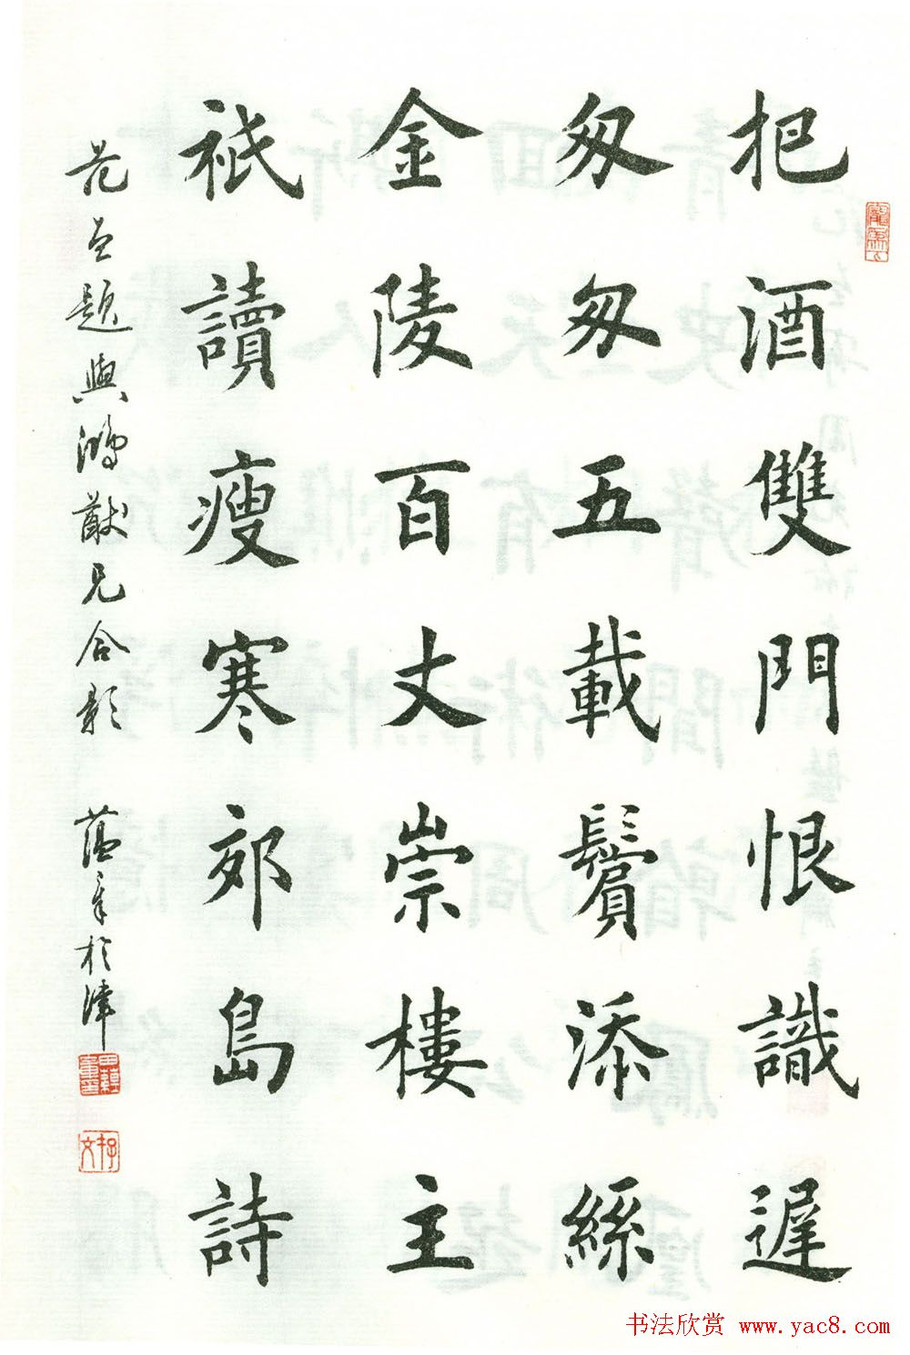 把酒雙門恨識遲
匆匆五載鬢添絲
金陵百丈崇樓主
祇讀瘦寒郊島詩
范曾題與鴻猷兄合影
蘊章於津
书法欣赏 www.yac8.com